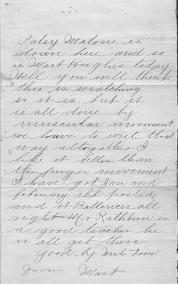 Patsy Malone is
down here and so
is Wart Hughes today
Well you will think
this is scratching
so it is but it
is all done by
muscular movement
we have to write that
way altogether I
like it better than
the finger movement
I have got Jan and
february all posted
and it Ballances all
right Mr Rathbun is
a good teacher he
is all get there
good by
from Wart